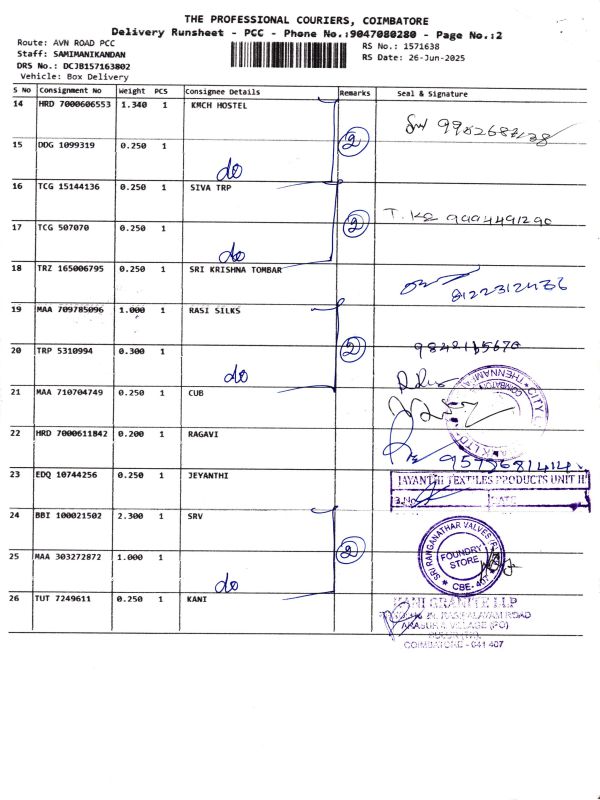 THE PROFESSIONAL COURIERS, COIMBATORE
Delivery Runsheet - PCC - Phone No.:9047080280 - Page No.:2
Route: AVN ROAD PCC
Staff: SAMIMANIKANDAN
DRS No.: DCJB157163802
Vehicle: Box Delivery
RS No.: 1571638
RS Date: 26-Jun-2025
S No Consignment No Weight PCS Consignee Details Remarks Seal & Signature
14 HRD 7000606553 1.340 1 KMCH HOSTEL
15 DDG 1099319 0.250 1 do 2
16 TCG 15144136 0.250 1 SIVA TRP
T. 9994491290
17 TCG 507070 0.250 1 do 2
18 TRZ 165006795 0.250 1 SRI KRISHNA TOMBAR
8122312436
19 MAA 709785096 1.000 1 RASI SILKS
20 TRP 5310994 0.300 1 do 2 9842115670
21 MAA 710704749 0.250 1 CUB
22 HRD 7000611842 0.200 1 RAGAVI
23 EDQ 10744256 0.250 1 JEYANTHI
JAYANTHI TEXTILES PRODUCTS UNIT II
DATE
24 BBI 100021502 2.300 1 SRV
SRI RANGANATHAR VALVES
FOUNDRY
STORE
CBE-
25 MAA 303272872 1.000 1 do 2
26 TUT 7249611 0.250 1 KANI
KANI GRANITE LLP
COIMBATORE - 641 407